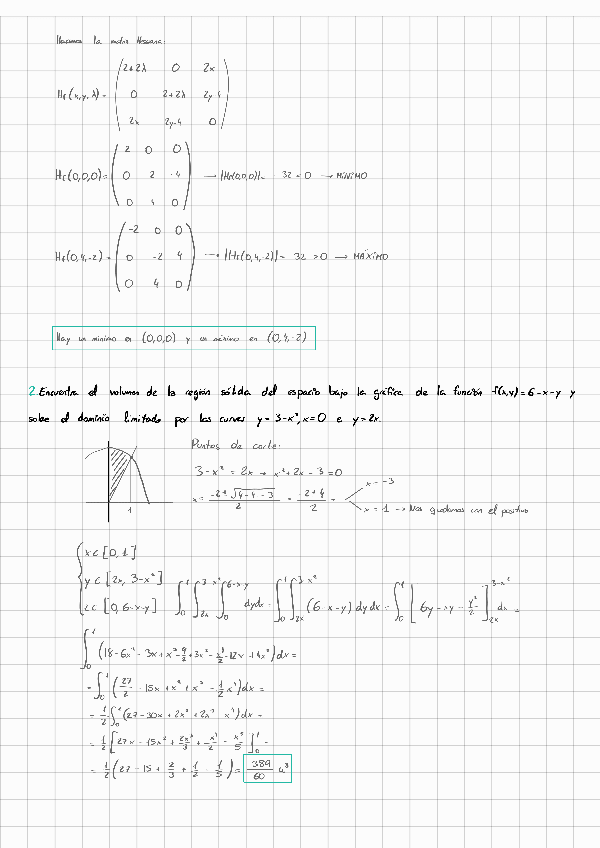 Hacemos la matriz Hessiana:
Hf(x,y,λ) = (2+2λ 0 2x
0 2+2λ 2y-4
2x 2y-4 0)
Hf(0,0,0) = (2 0 0
0 2 -4
0 4 0) → |Hf(0,0,0)| = 32 < 0 → MÍNIMO
Hf(0,4,-2) = (-2 0 0
0 -2 4
0 4 0) → |Hf(0,4,-2)| = 32 > 0 → MÁXIMO
Hay un mínimo en (0,0,0) y un máximo en (0,4,-2)
2. Encuentra el volumen de la región sólida del espacio bajo la gráfica de la función f(x,y)=6-x-y y
sobre el dominio limitado por las curvas y=3-x², x=0 e y=2x.
Puntos de corte:
3-x² = 2x → x²+2x-3=0
x = (-2±√(4-4·-3))/2 = (-2±4)/2 = x=-3
x=1 → Nos quedamos con el positivo
1
x∈[0,1]
y∈[2x, 3-x²]
z∈[0, 6-x-y] ∫₀¹∫₂ₓ^(3-x²)∫₀^(6-x-y) dydx = ∫₀¹∫₂ₓ^(3-x²) (6-x-y) dydx = ∫₀¹ [6y-yx-y²/2]₂ₓ^(3-x²) dx =
∫₀¹ (18-6x²-3x+x³-9/2+3x²-x⁴/2-12x+4x²) dx =
= ∫₀¹ (27/2-15x+x²+x³-1/2x⁴) dx =
= 1/2∫₀¹ (27-30x+2x²+2x³-x⁴) dx =
= 1/2 [27x-15x²+2x³/3+x⁴/2-x⁵/5]₀¹ =
= 1/2 (27-15+2/3+1/2-1/5) = 389/60 u³